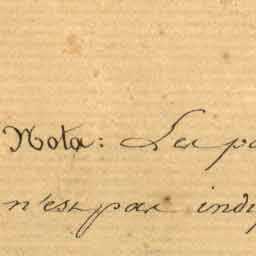 Nota: Les po
n'est pas indi